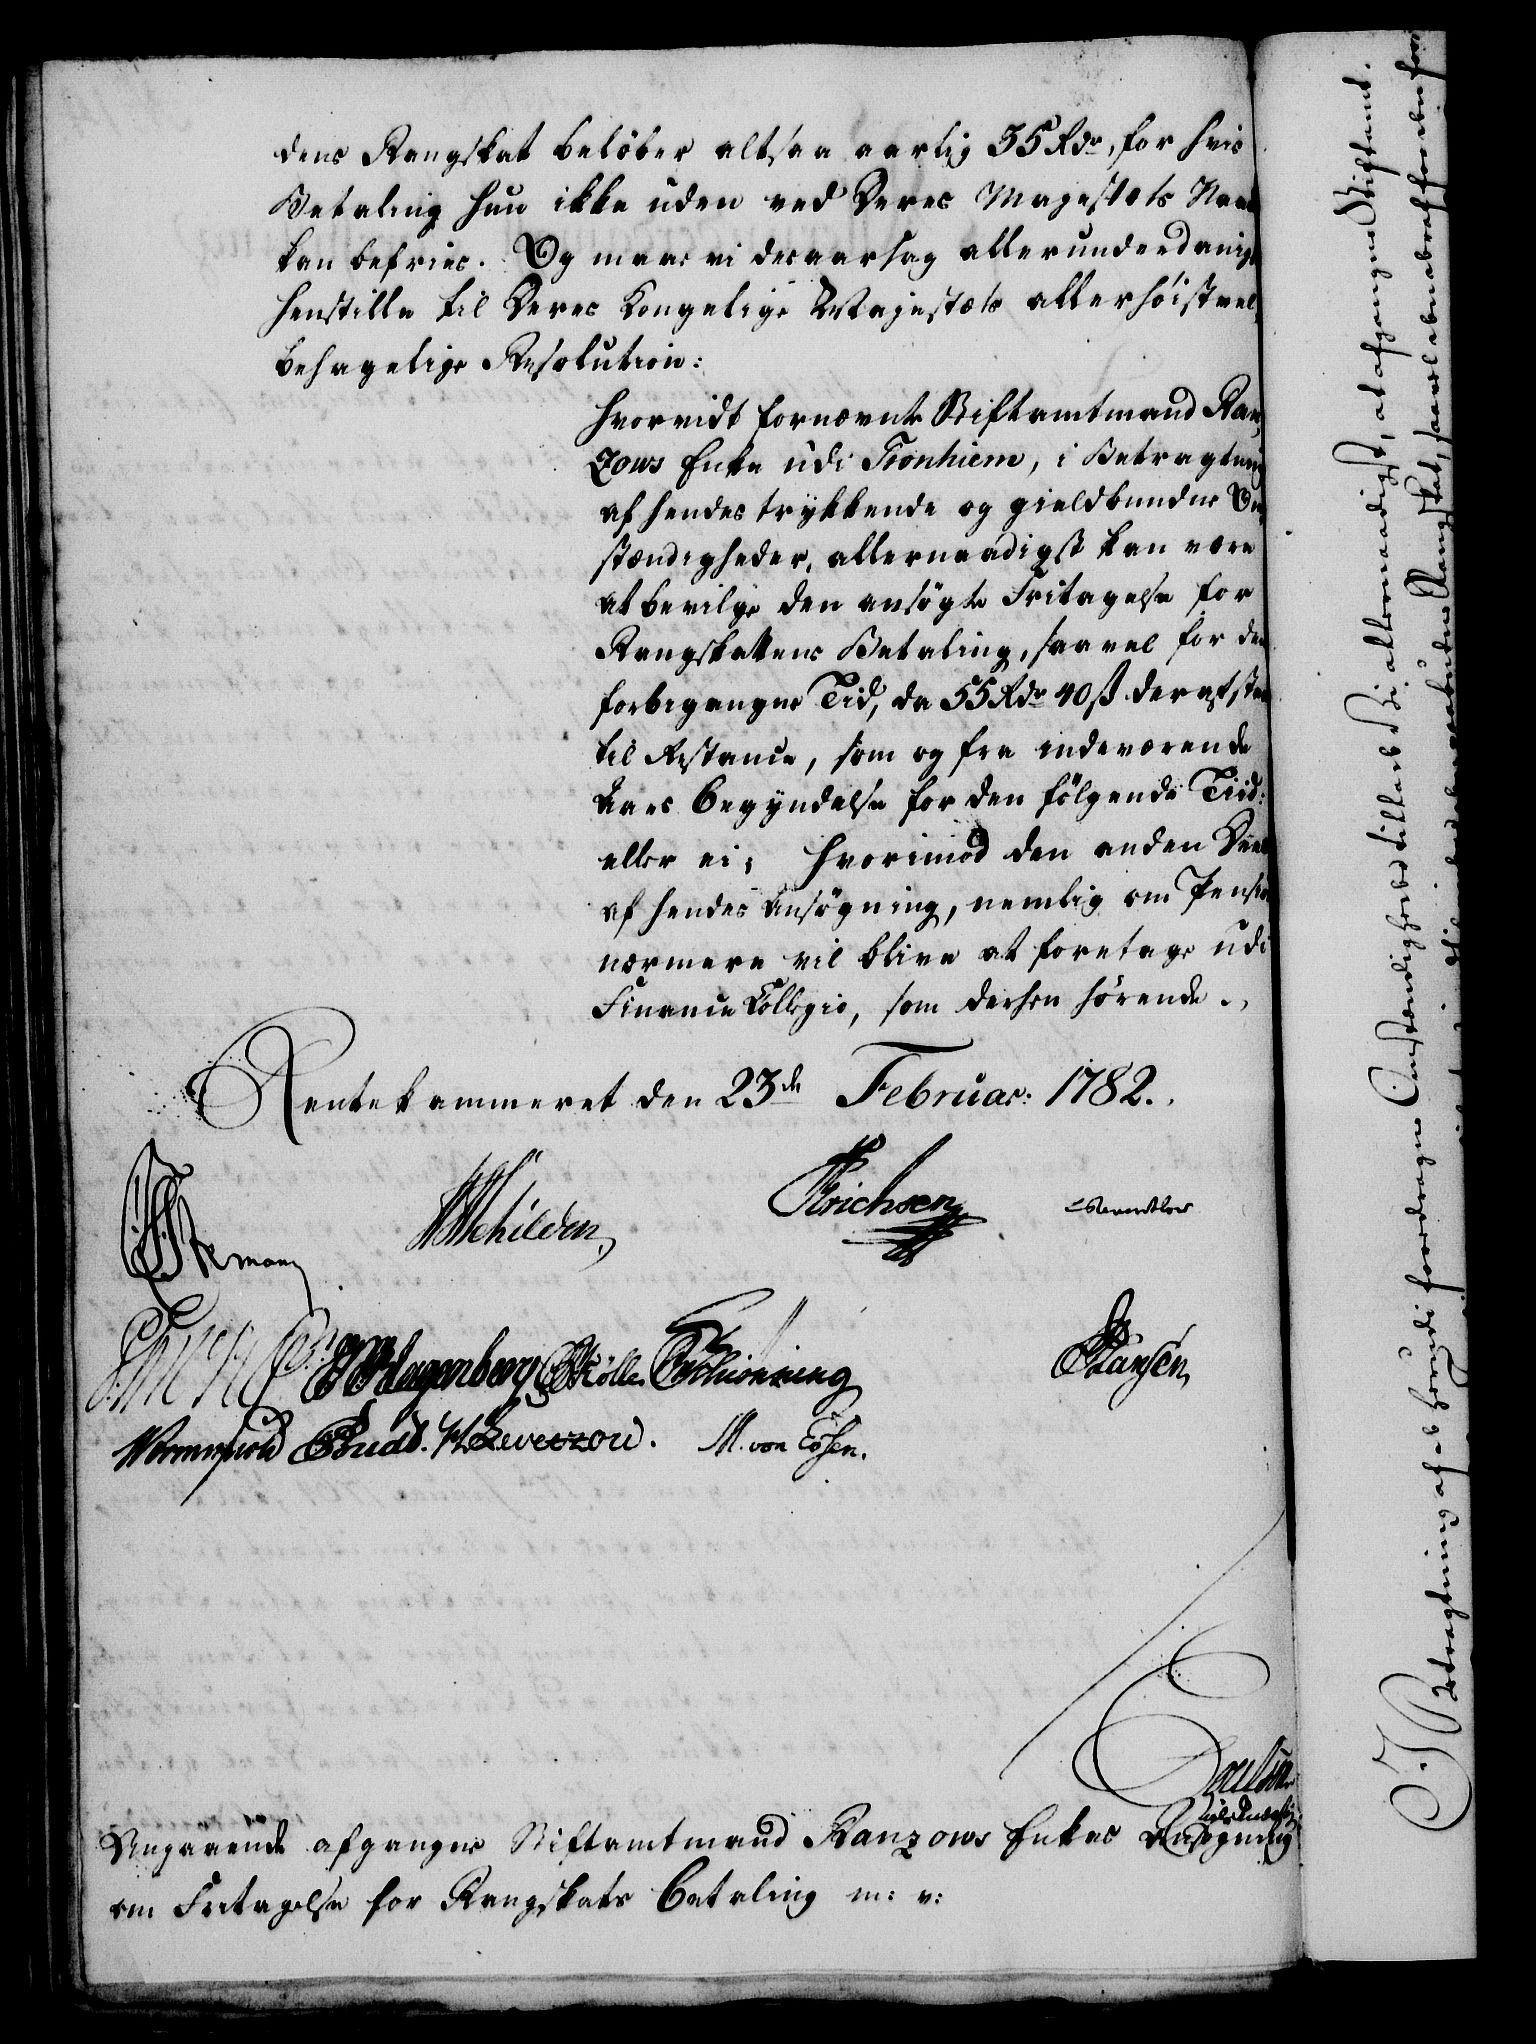 dens Rangskat beløber altsaa aarlig 35 Rdr, for hvis
Betaling hun ikke uden ved Deres Majestæts Naade
kan befries. Og maae vi desaarsag allerunderdanigst
henstille til Deres Kongelige Majestæts allerhøistvel,
behagelige Resolution:
hvorvidt fornævnte Stiftamtmand Ran,
zows Enke udi Tronhiem, i Betragtning
af hendes trykkende og gieldbundne Om,
stændigheder, allernaadigst kan være
at bevilge den ansøgte Fritagelse for
Rangskattens Betaling, saavel for den
forbigangne Tid, da 55 Rdr 40 ß deraf staar
til Restance, som og fra indeværende
Aars Begyndelse for den følgende Tiid:
eller ei; hvorimod den anden Deel
af hendes Ansøgning, nemlig om Pension
nærmere vil blive at foretage udi
Finance Collegio, som derhen hørende.
Rentekammeret den 23de Februar: 1782.
Stemann
Schilden
Erichsen
Hagenberg Møller Schiønning Hansen
Wormskiold Levetzou. M. von Essen.
Angaaende afgangne Stiftamtmand Ranzows Enkes Ansøgning
om Fritagelse for Rangskats Betaling m: v:
I Betragtning af de herudi foredragne Omstændigheder tillade Vi allernaadigst, at afgangne Stiftamt,